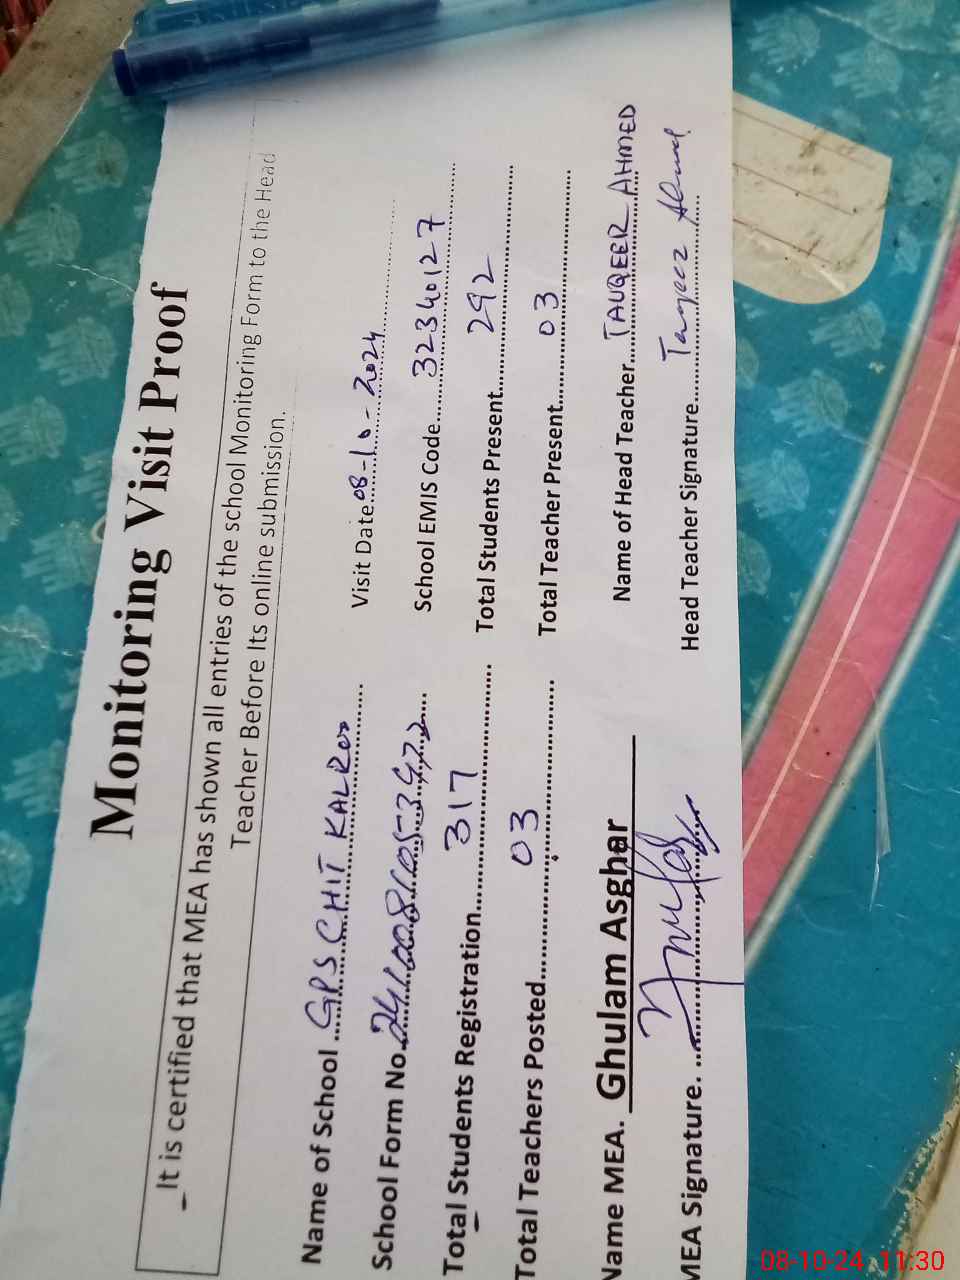 Monitoring Visit Proof
_It is certified that MEA has shown all entries of the school Monitoring Form to the Head
Teacher Before Its online submission.
Name of School GPS CHIT KALROO Visit Date 08-10-2024
School Form No. School EMIS Code 32340127
Total Students Registration 317 Total Students Present 292
Total Teachers Posted 03 Total Teacher Present 03
Name MEA. Ghulam Asghar Name of Head Teacher TAUQEER AHMED
MEA Signature. Head Teacher Signature Tauqeer Ahmed
08-10-24 11:30